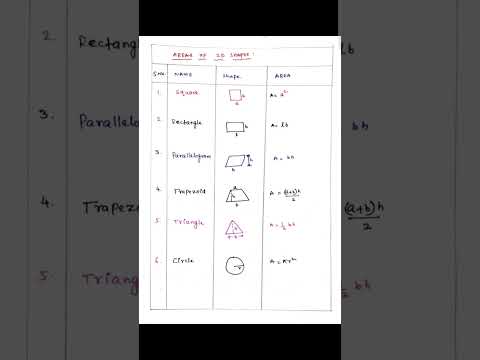 AREAS OF 2D SHAPES:
S.No. NAME Shape AREA
1. Square a a A = a²
2. Rectangle b l A = lb
3. Parallelogram h b A = bh
4. Trapezoid a h b A = (a+b)h/2
5. Triangle h b A = 1/2 bh
6. Circle r A = πr²
2. Rectangle lb
3. Parallelo bh
4. Trapezo (a+b)h/2
5. Triang 1/2 bh